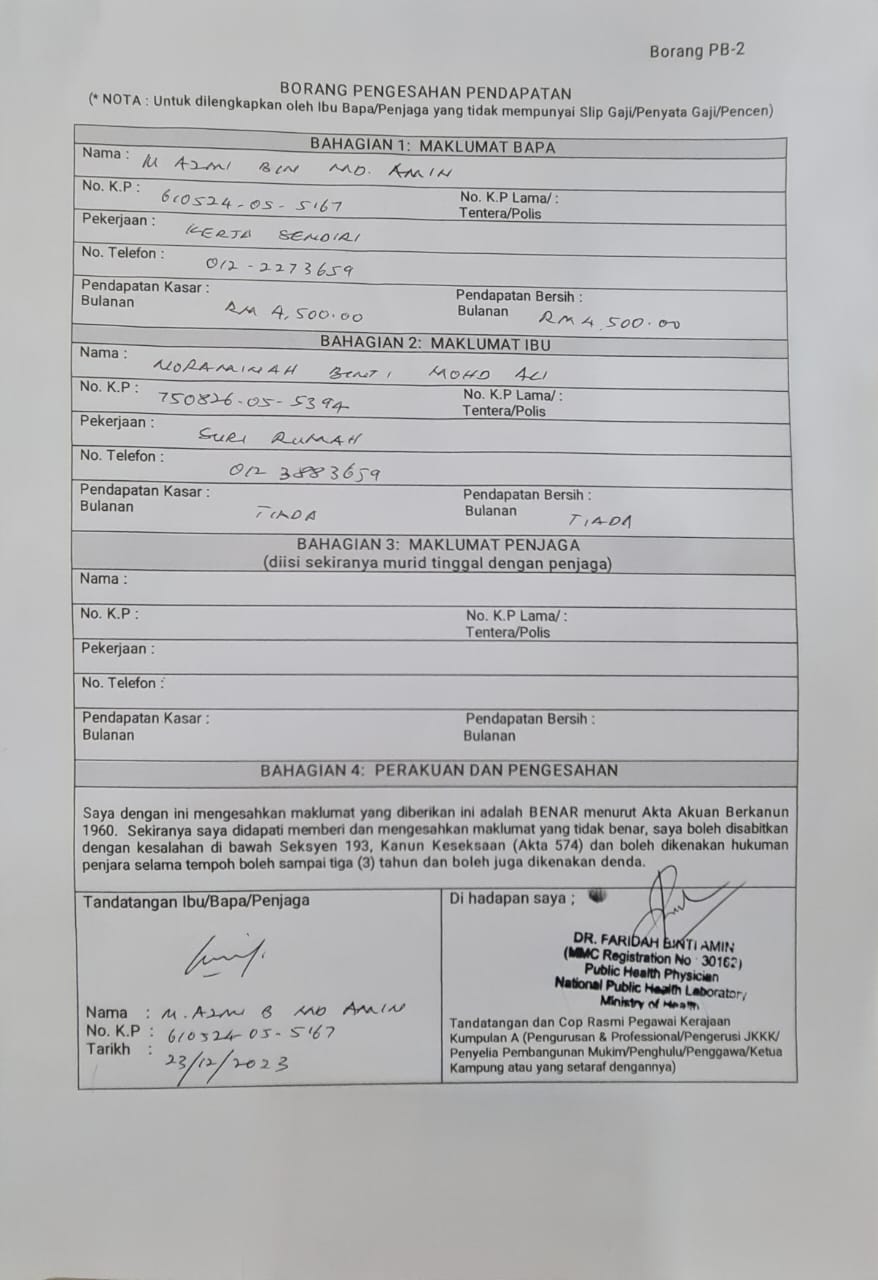 Borang PB-2
BORANG PENGESAHAN PENDAPATAN
(* NOTA : Untuk dilengkapkan oleh Ibu Bapa/Penjaga yang tidak mempunyai Slip Gaji/Penyata Gaji/Pencen)
BAHAGIAN 1: MAKLUMAT BAPA
Nama : M AZMI BIN MD. AMIN
No. K.P : 610524-05-5167 No. K.P Lama/ :
Tentera/Polis
Pekerjaan : KERJA SENDIRI
No. Telefon : 012-2273659
Pendapatan Kasar : Pendapatan Bersih :
Bulanan RM 4,500.00 Bulanan RM 4,500.00
BAHAGIAN 2: MAKLUMAT IBU
Nama : NORAMINAH BINTI MOHD ALI
No. K.P : 750826-05-5394 No. K.P Lama/ :
Tentera/Polis
Pekerjaan : SURI RUMAH
No. Telefon : 012 3883659
Pendapatan Kasar : Pendapatan Bersih :
Bulanan TIADA Bulanan TIADA
BAHAGIAN 3: MAKLUMAT PENJAGA
(diisi sekiranya murid tinggal dengan penjaga)
Nama :
No. K.P : No. K.P Lama/ :
Tentera/Polis
Pekerjaan :
No. Telefon :
Pendapatan Kasar : Pendapatan Bersih :
Bulanan Bulanan
BAHAGIAN 4: PERAKUAN DAN PENGESAHAN
Saya dengan ini mengesahkan maklumat yang diberikan ini adalah BENAR menurut Akta Akuan Berkanun
1960. Sekiranya saya didapati memberi dan mengesahkan maklumat yang tidak benar, saya boleh disabitkan
dengan kesalahan di bawah Seksyen 193, Kanun Keseksaan (Akta 574) dan boleh dikenakan hukuman
penjara selama tempoh boleh sampai tiga (3) tahun dan boleh juga dikenakan denda.
Tandatangan Ibu/Bapa/Penjaga
Nama : M. AZMI B MD AMIN
No. K.P : 610524-05-5167
Tarikh : 23/12/2023
Di hadapan saya ;
DR. FARIDAH BINTI AMIN
(MMC Registration No : 30162)
Public Health Physician
National Public Health Laboratory
Ministry of Health
Tandatangan dan Cop Rasmi Pegawai Kerajaan
Kumpulan A (Pengurusan & Professional/Pengerusi JKKK/
Penyelia Pembangunan Mukim/Penghulu/Penggawa/Ketua
Kampung atau yang setaraf dengannya)